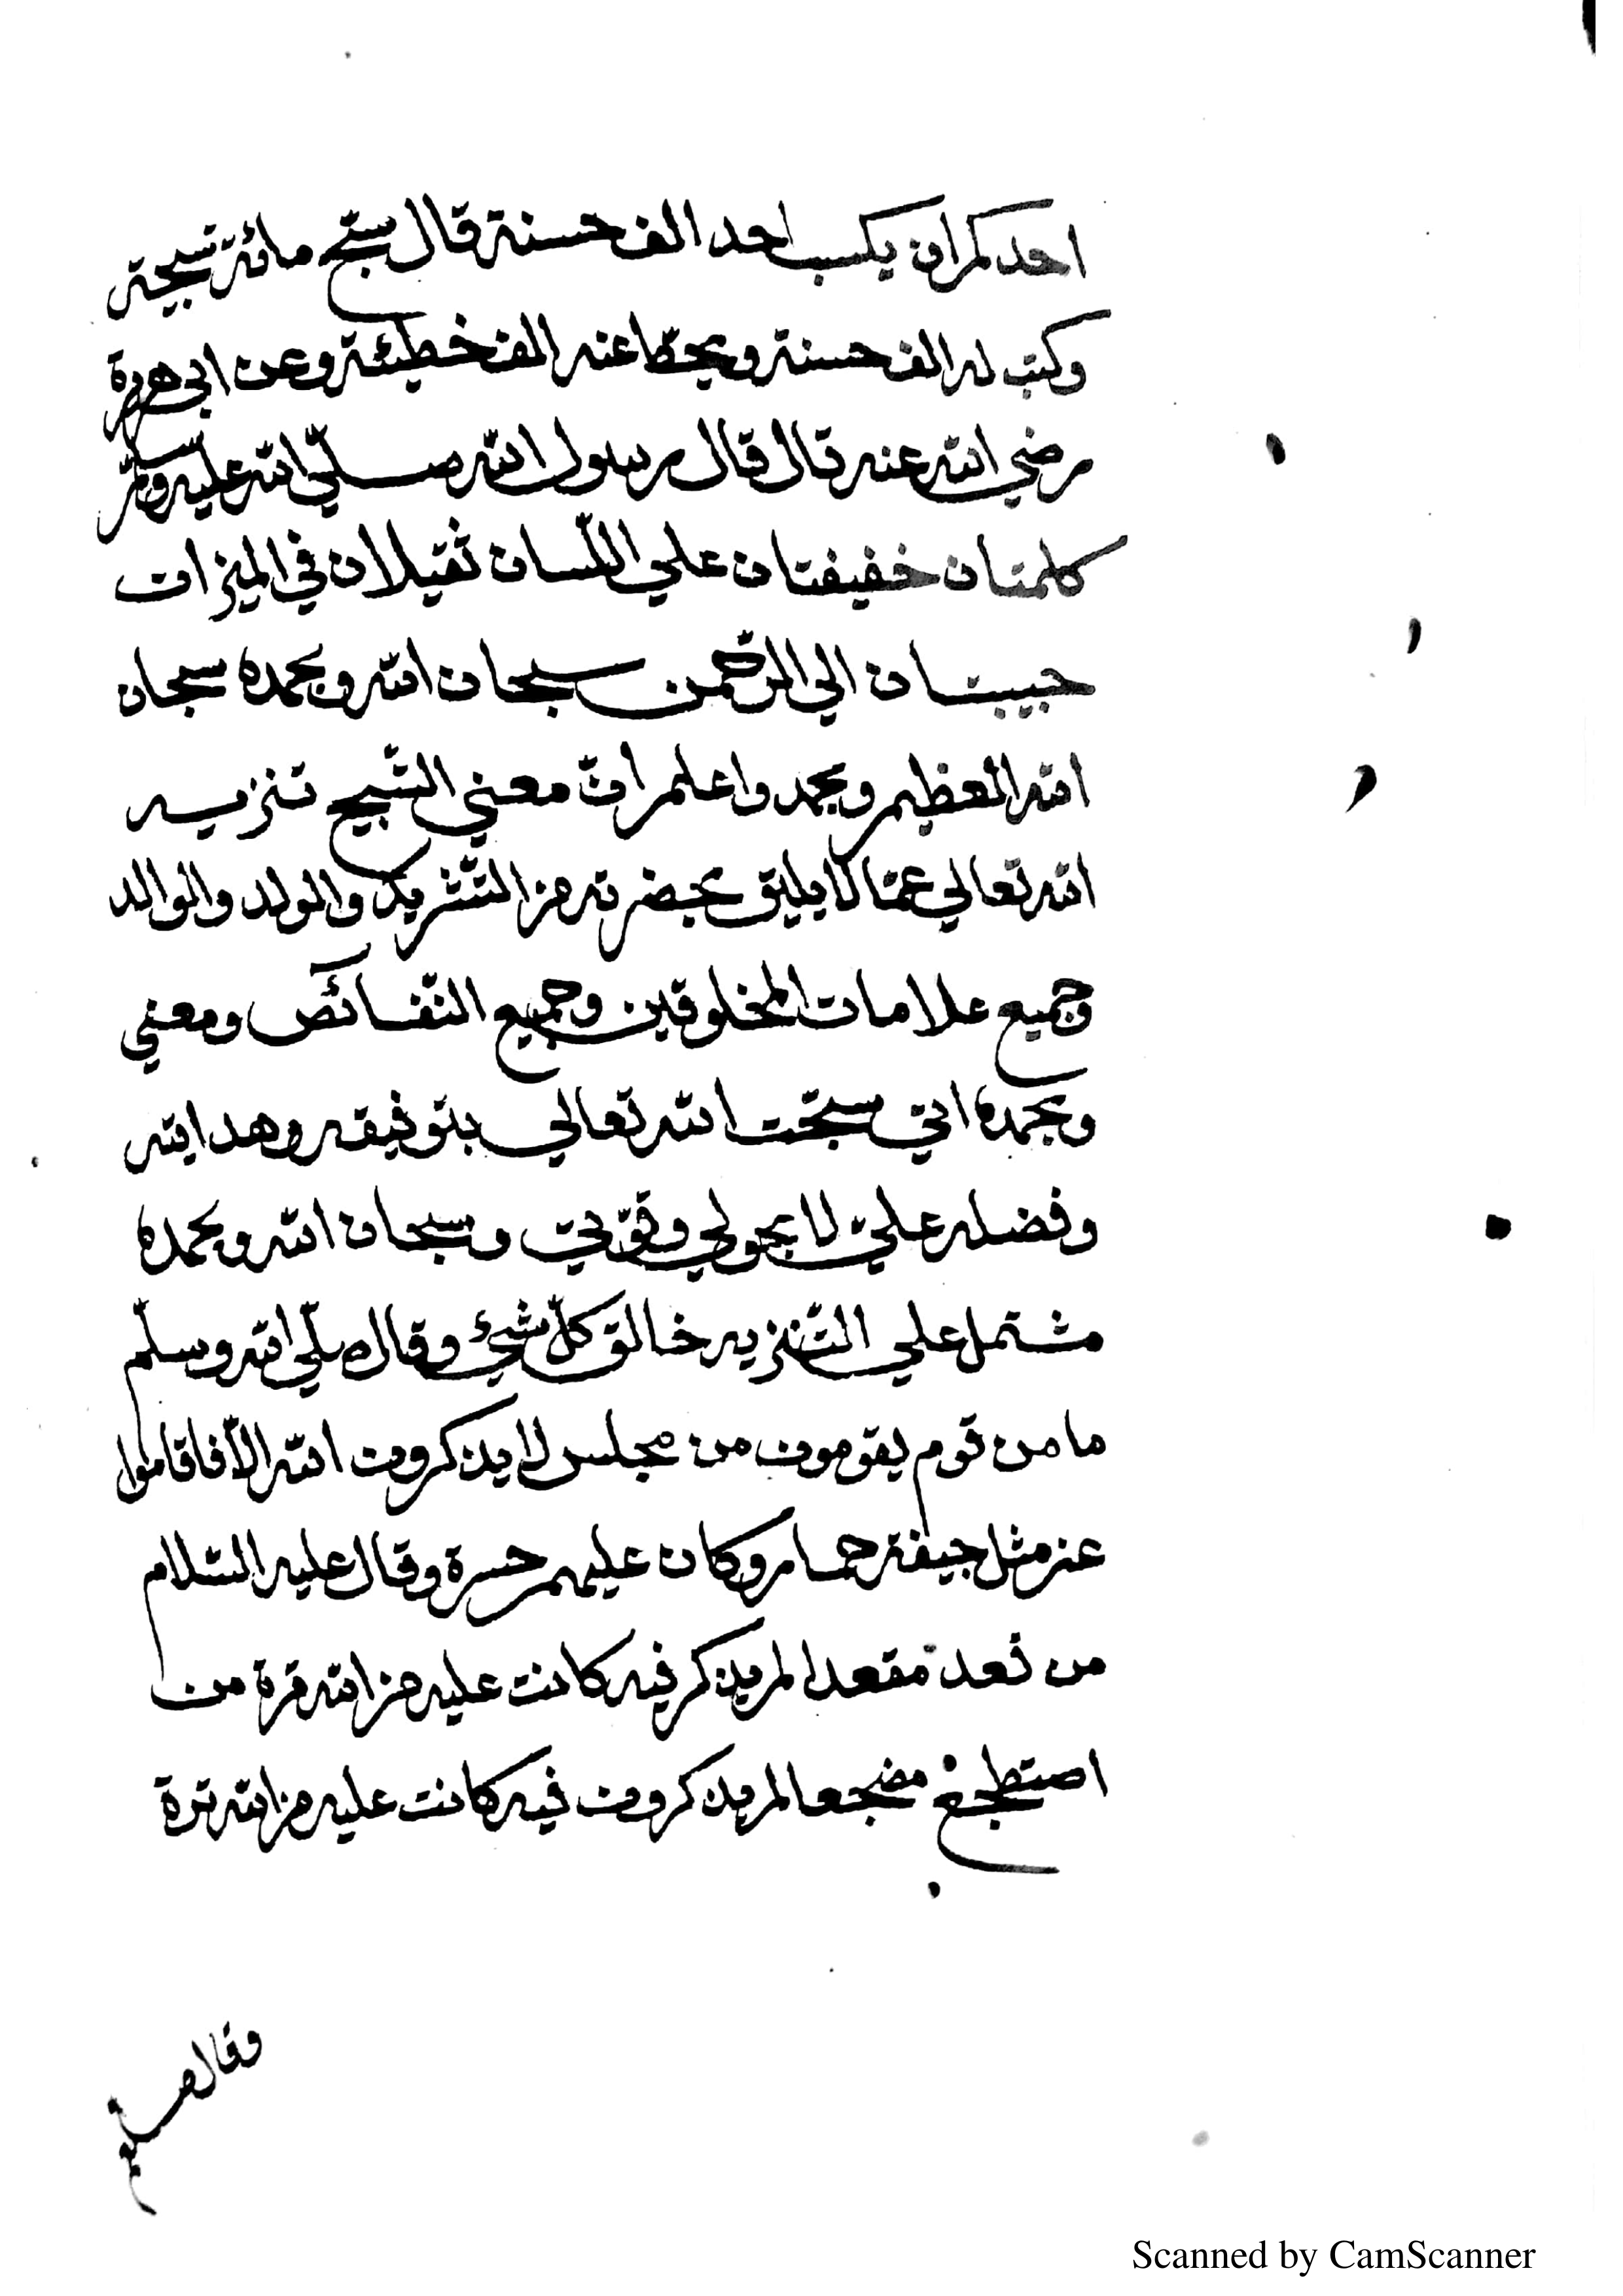 احدكم ان يكسب احد الف حسنة قال سبّح مائة تسبيحة
وكتب له الف حسنة ويحطا عنه الف خطيئة وعن ابي هريرة
رضي الله عنه قال قال رسول الله صلّي الله عليه وسلّم
كلمتان خفيفتان علي اللّسان ثقيلان في الميزان
حبيبتان الي الرّحمن سبحان الله وبحمده سبحان
الله العظيم وبحمد واعلم انّ معني التّسبيح تنزيه
الله تعالي عمّا لا يليق بحضرته من الشّريك والولد والوالد
وجميع علامات المخلوقين وجميع النّقائص ومعني
وبحمده انّي سبّحت الله تعالي بتوفيقه وهدايته
وفضله عليّ لا بحولي وقوّتي وسبحان الله وبحمده
مشتمل علي التّنزيه خالق كلّ شيئ وقال صلّي الله وسلّم
ما من قوم يقومون من مجلس لا يذكرون الله الاّ فاقاموا
عن مثل جيفة حمار وكان عليهم حسرة وقال عليه السّلام
من قعد مقعدا لم يذكر فيه كانت عليه من الله ترة من
اصتطجع مضجعا لم يذكرون فيه كانت عليه من الله ترة
وقال
Scanned by CamScanner